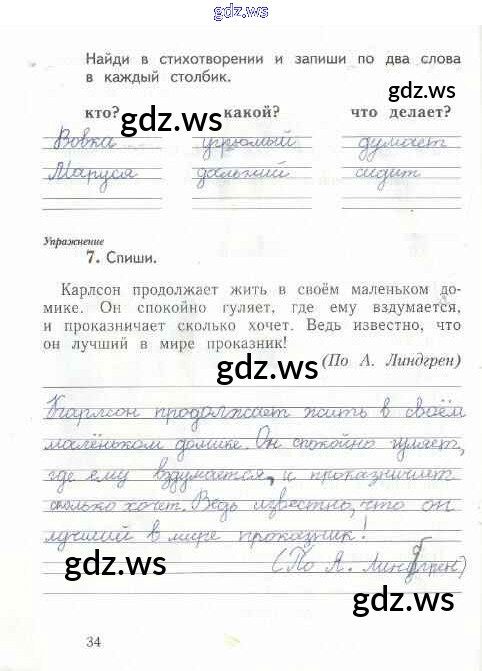 gdz.ws
Найди в стихотворении и запиши по два слова
в каждый столбик.
gdz.ws
кто? какой? что делает?
gdz.ws
Вовка угрюмый думает
Маруся дальний сидит
Упражнение
7. Спиши.
Карлсон продолжает жить в своём маленьком до-
мике. Он спокойно гуляет, где ему вздумается,
и проказничает сколько хочет. Ведь известно, что
он лучший в мире проказник!
(По А. Линдгрен)
gdz.ws
Карлсон продолжает жить в своём
маленьком домике. Он спокойно гуляет,
где ему вздумается, и проказничает
сколько хочет. Ведь известно, что он
лучший в мире проказник!
(По А. Линдгрен)
gdz.ws
gdz.ws
34
gdz.ws